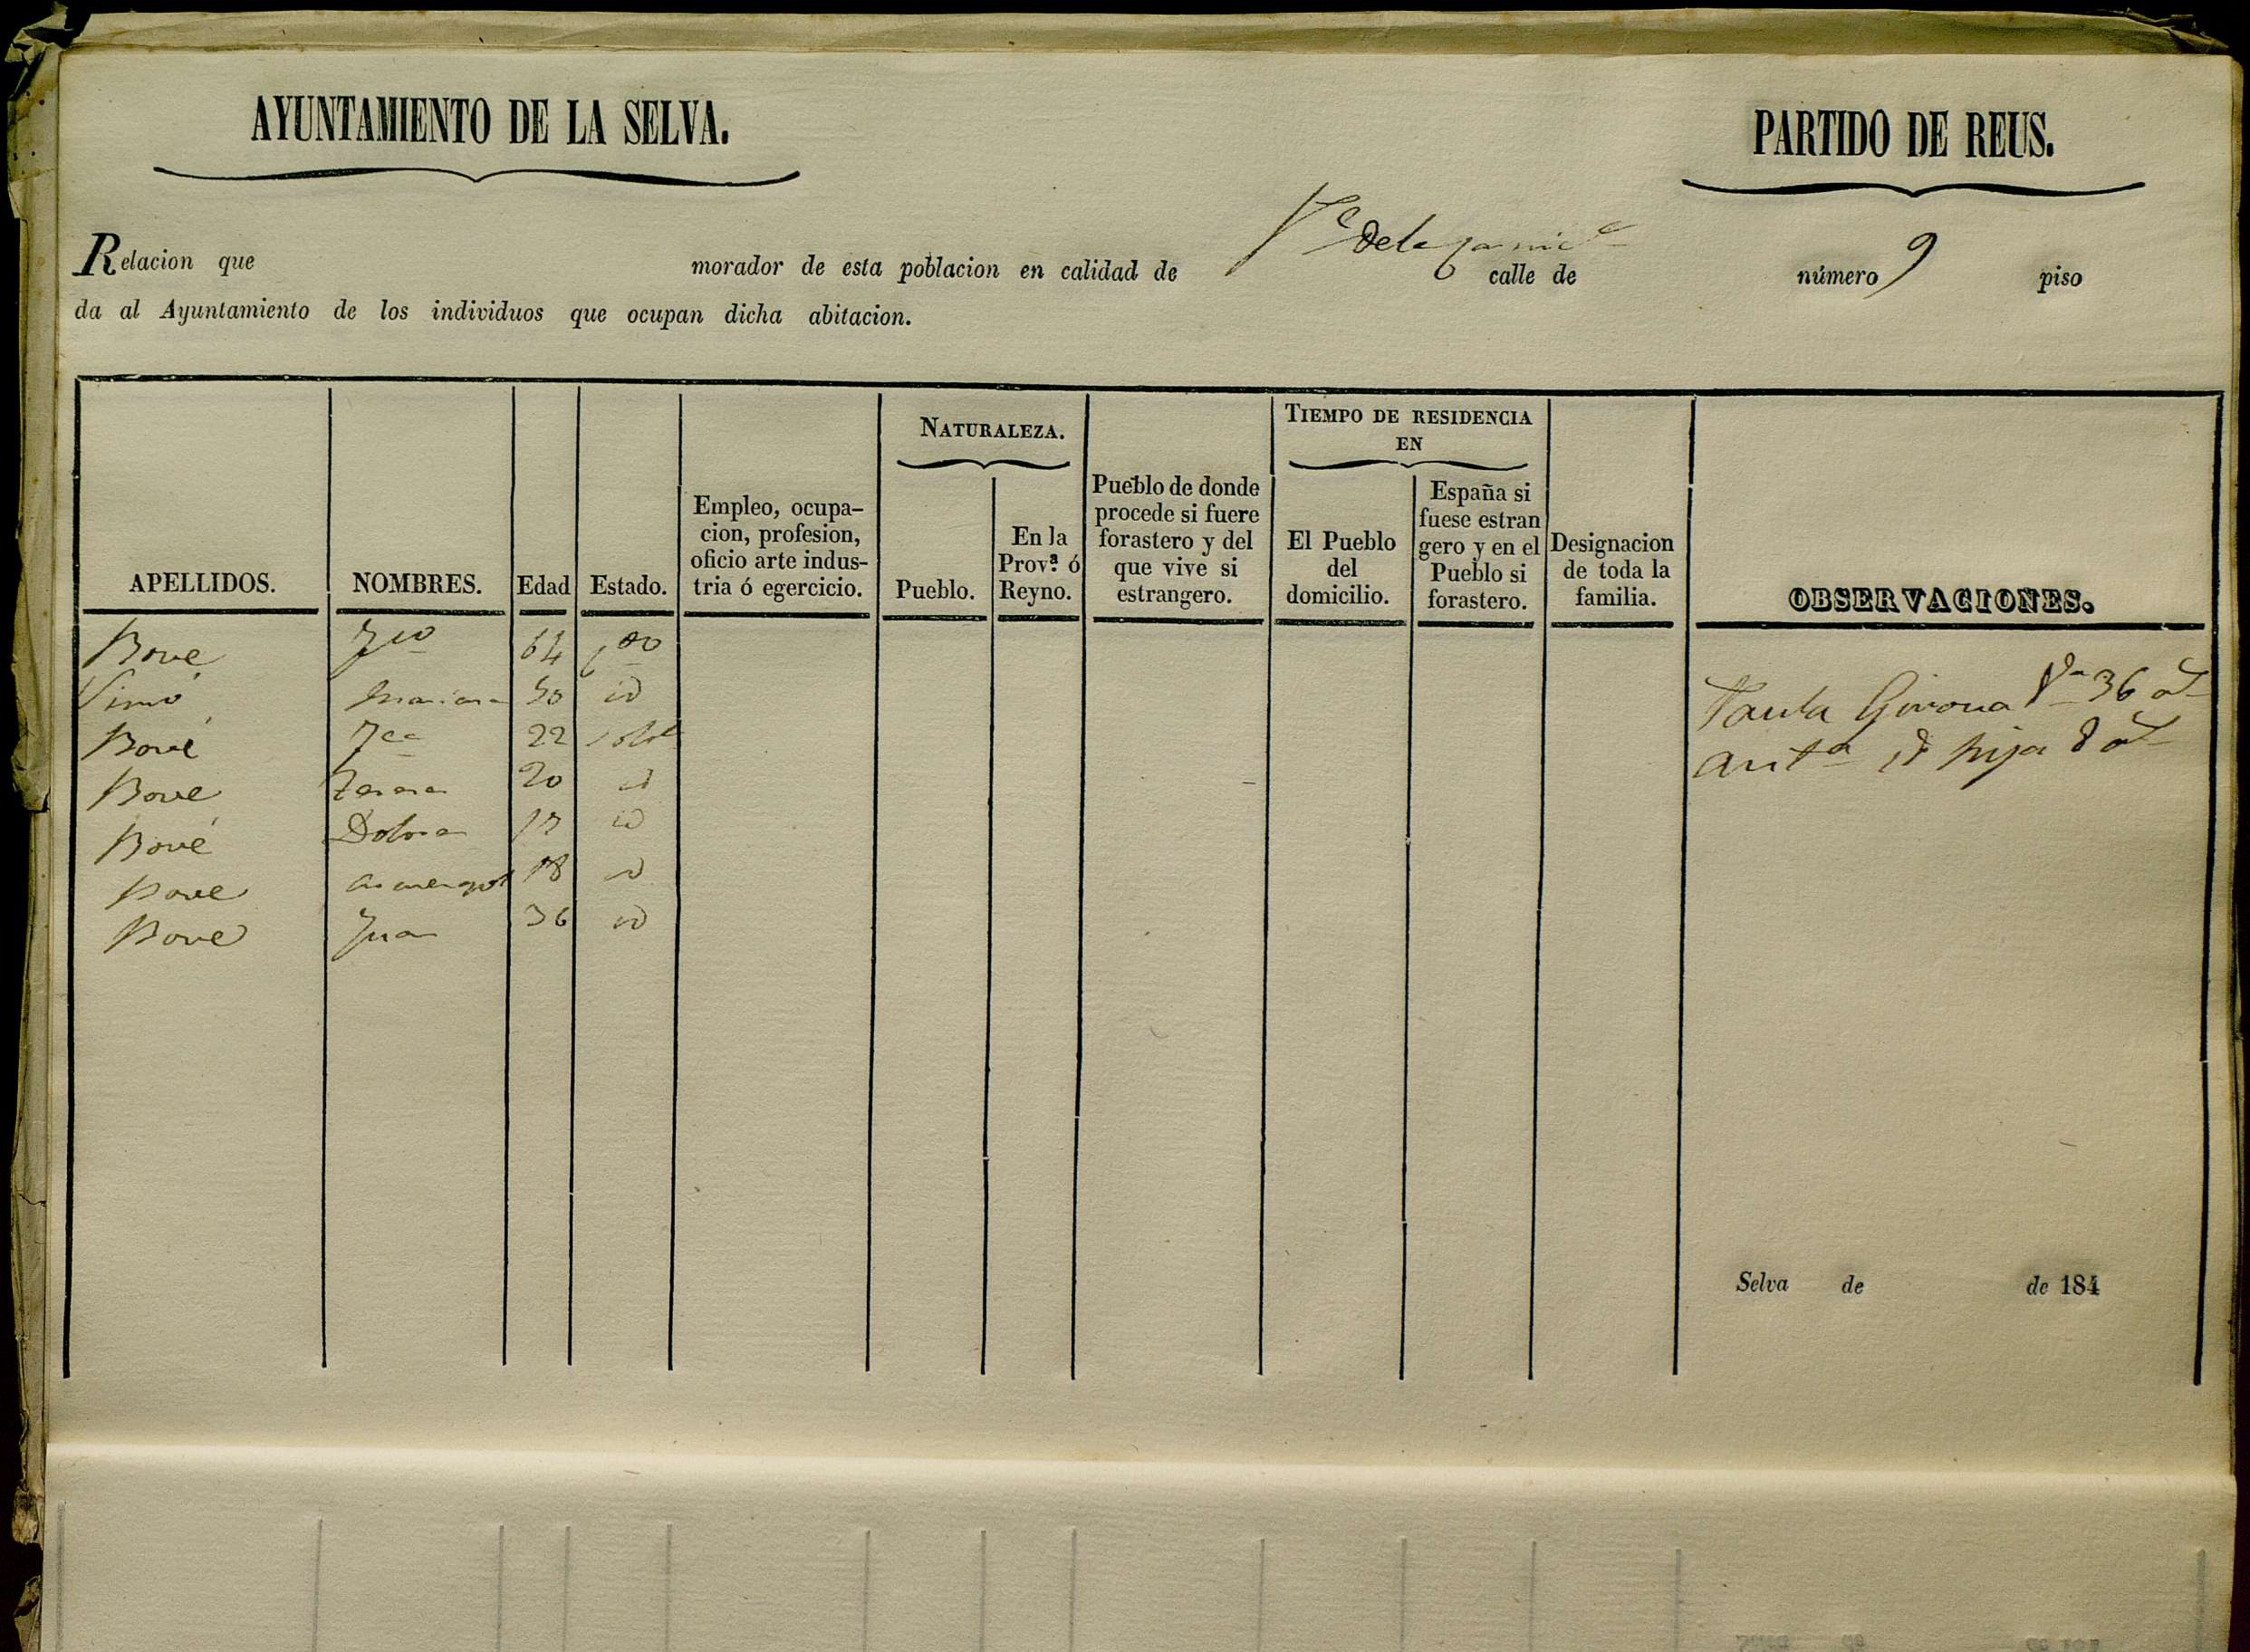 AYUNTAMIENTO DE LA SELVA.
PARTIDO DE REUS.
Relacion que morador de esta poblacion en calidad de calle de número 9 piso
da al Ayuntamiento de los individuos que ocupan dicha abitacion.
APELLIDOS.
NOMBRES.
Edad
Estado.
Empleo, ocupa-
cion, profesion,
oficio arte indus-
tria ó egercicio.
NATURALEZA.
Pueblo.
En la
Prov.ª ó
Reyno.
Pueblo de donde
procede si fuere
forastero y del
que vive si
estrangero.
TIEMPO DE RESIDENCIA
EN
El Pueblo
del
domicilio.
España si
fuese estran
gero y en el
Pueblo si
forastero.
Designacion
de toda la
familia.
OBSERVACIONES.
Bove 64
Simó Mariana 50 id
Bové 22
Bove 20 id
Bové id
Bove 18 id
Bove Juan 36 id
Paula Girona 36
Ant.a id hija 8
Selva de de 184